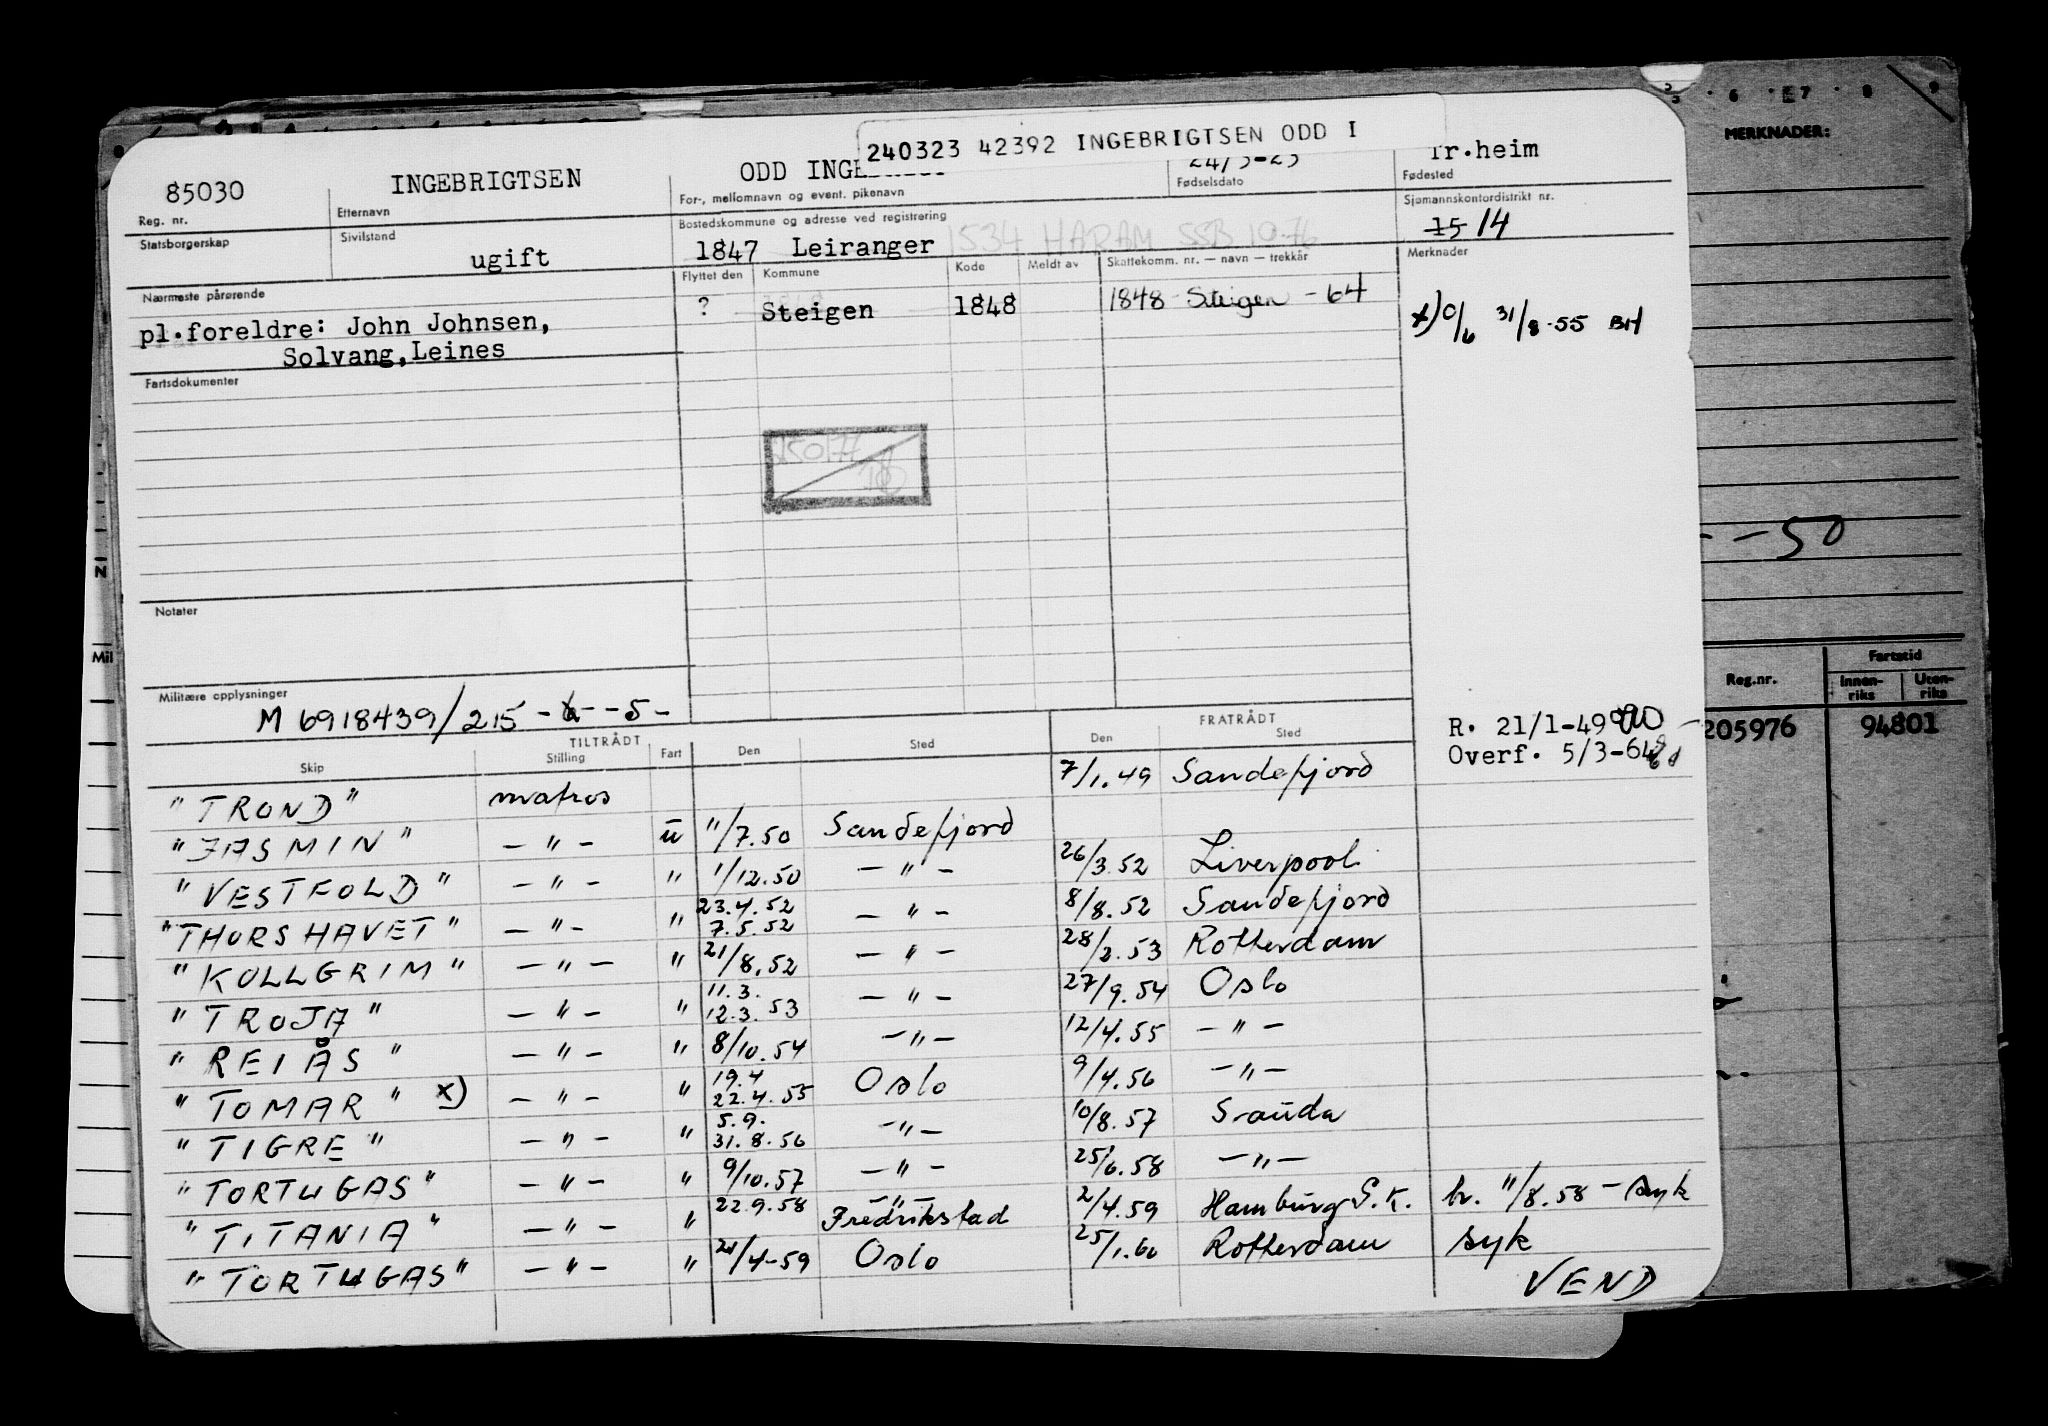 240323 42392 INGEBRIGTSEN ODD I
85030 INGEBRIGTSEN ODD 24/3-23 Tr.heim
Reg. nr. Etternavn For-, mellomnavn og event. pikenavn Fødselsdato Fødested
Statsborgerskap Sivilstand Bostedskommune og adresse ved registrering Sjømannskontordistrikt nr.
ugift 1847 Leiranger 1534 HARAM SSB 10.76 15 14
Nærmeste pårørende Flyttet den Kommune Kode Meldt av Skattekomm. nr. — navn — trekkår Merknader
pl.foreldre: John Johnsen, ? Steigen 1848 1848 Steigen - 64 x) 0/6 31/8-55 BH
Solvang,Leines
Fartsdokumenter
Notater
Militære opplysninger
M 6918439/215 - - 5 -
R. 21/1-49
Overf. 5/3-64
TILTRÅDT FRATRÅDT
Skip Stilling Fart Den Sted Den Sted
"TROND" matros 7/1.49 Sandefjord
"JASMIN" — " — u 11/7.50 Sandefjord
"VESTFOLD" — " — " 1/12.50 — " — 26/3.52 Liverpool
"THORSHAVET" — " — " 23.4.52 7.5.52 — " — 8/8.52 Sandefjord
"KOLLGRIM" — " — " 21/8.52 — " — 28/2.53 Rotterdam
"TROJA" — " — " 11.3. 12.3.53 — " — 27/9.54 Oslo
"REIÅS" — " — " 8/10.54 — " — 12/4.55 — " —
"TOMAR" x) — " — " 19.4 22.4.55 Oslo 9/4.56 — " —
"TIGRE" — " — " 5.9. 31.8.56 — " — 10/8.57 Sauda
"TORTUGAS" — " — " 9/10.57 — " — 25/6.58 — " —
"TITANIA" — " — " 22.9.58 — " — Fredrikstad 2/4.59 Hamburg S.K. br. 11/8.58 - syk
"TORTUGAS" — " — " 21/4-59 Oslo 25/1.60 Rotterdam syk
VEND
6 E7 8 9
MERKNADER:
- - 50
N
Mil
Reg.nr. Fartstid
Innenriks Utenriks
205976 94801